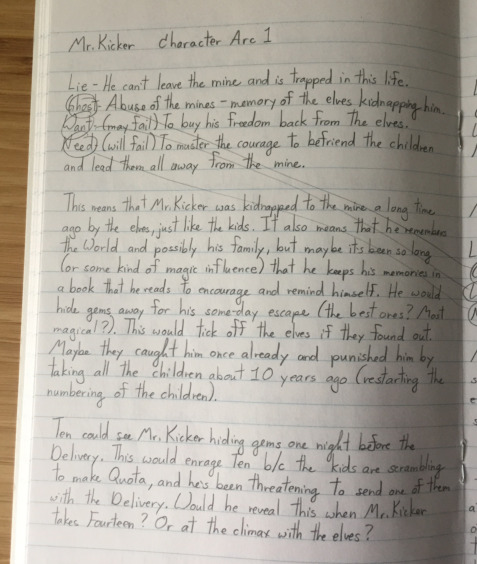 Mr. Kicker Character Arc 1
Lie - He can't leave the mine and is trapped in this life.
Ghost - Abuse of the mines - memory of the elves kidnapping him.
Want - (may fail) To buy his freedom back from the elves.
Need - (will fail) To muster the courage to befriend the children
and lead them all away from the mine.
This means that Mr. Kicker was kidnapped to the mine a long time
ago by the elves, just like the kids. It also means that he remembers
the World and possibly his family, but maybe it's been so long
(or some kind of magic influence) that he keeps his memories in
a book that he reads to encourage and remind himself. He would
hide gems away for his some-day escape (the best ones? Most
magical?). This would tick off the elves if they found out.
Maybe they caught him once already and punished him by
taking all the children about 10 years ago (restarting the
numbering of the children).
Ten could see Mr. Kicker hiding gems one night before the
Delivery. This would enrage Ten b/c the kids are scrambling
to make Quota, and he's been threatening to send one of them
with the Delivery. Would he reveal this when Mr. Kicker
takes Fourteen? Or at the climax with the elves?